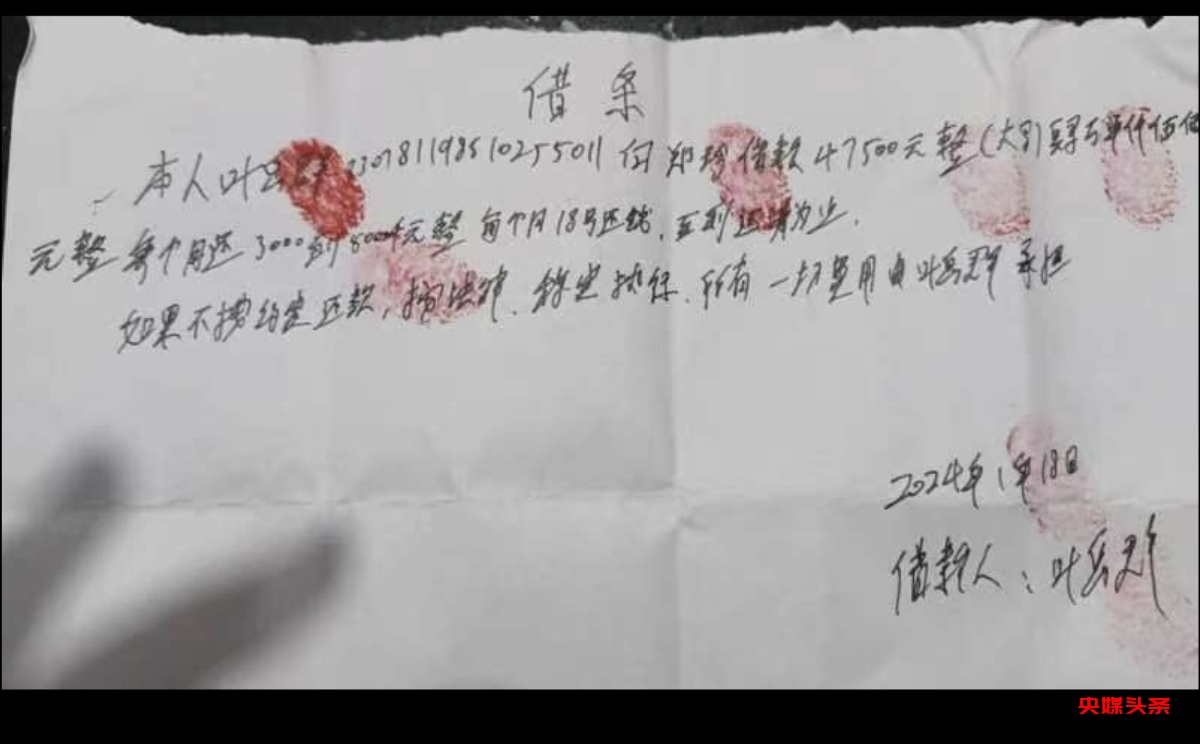 借条
本人叶岳 330781198510255011 向郑珍借款47500元整(大写)肆万柒仟伍佰
元整 每个月还3000到8000元整 每个月18号还钱,直到还清为止.
如果不按约定还款,按法律.规定执行.所有一切费用由叶岳承担
2024年1月18日
借款人:叶岳
央媒头条